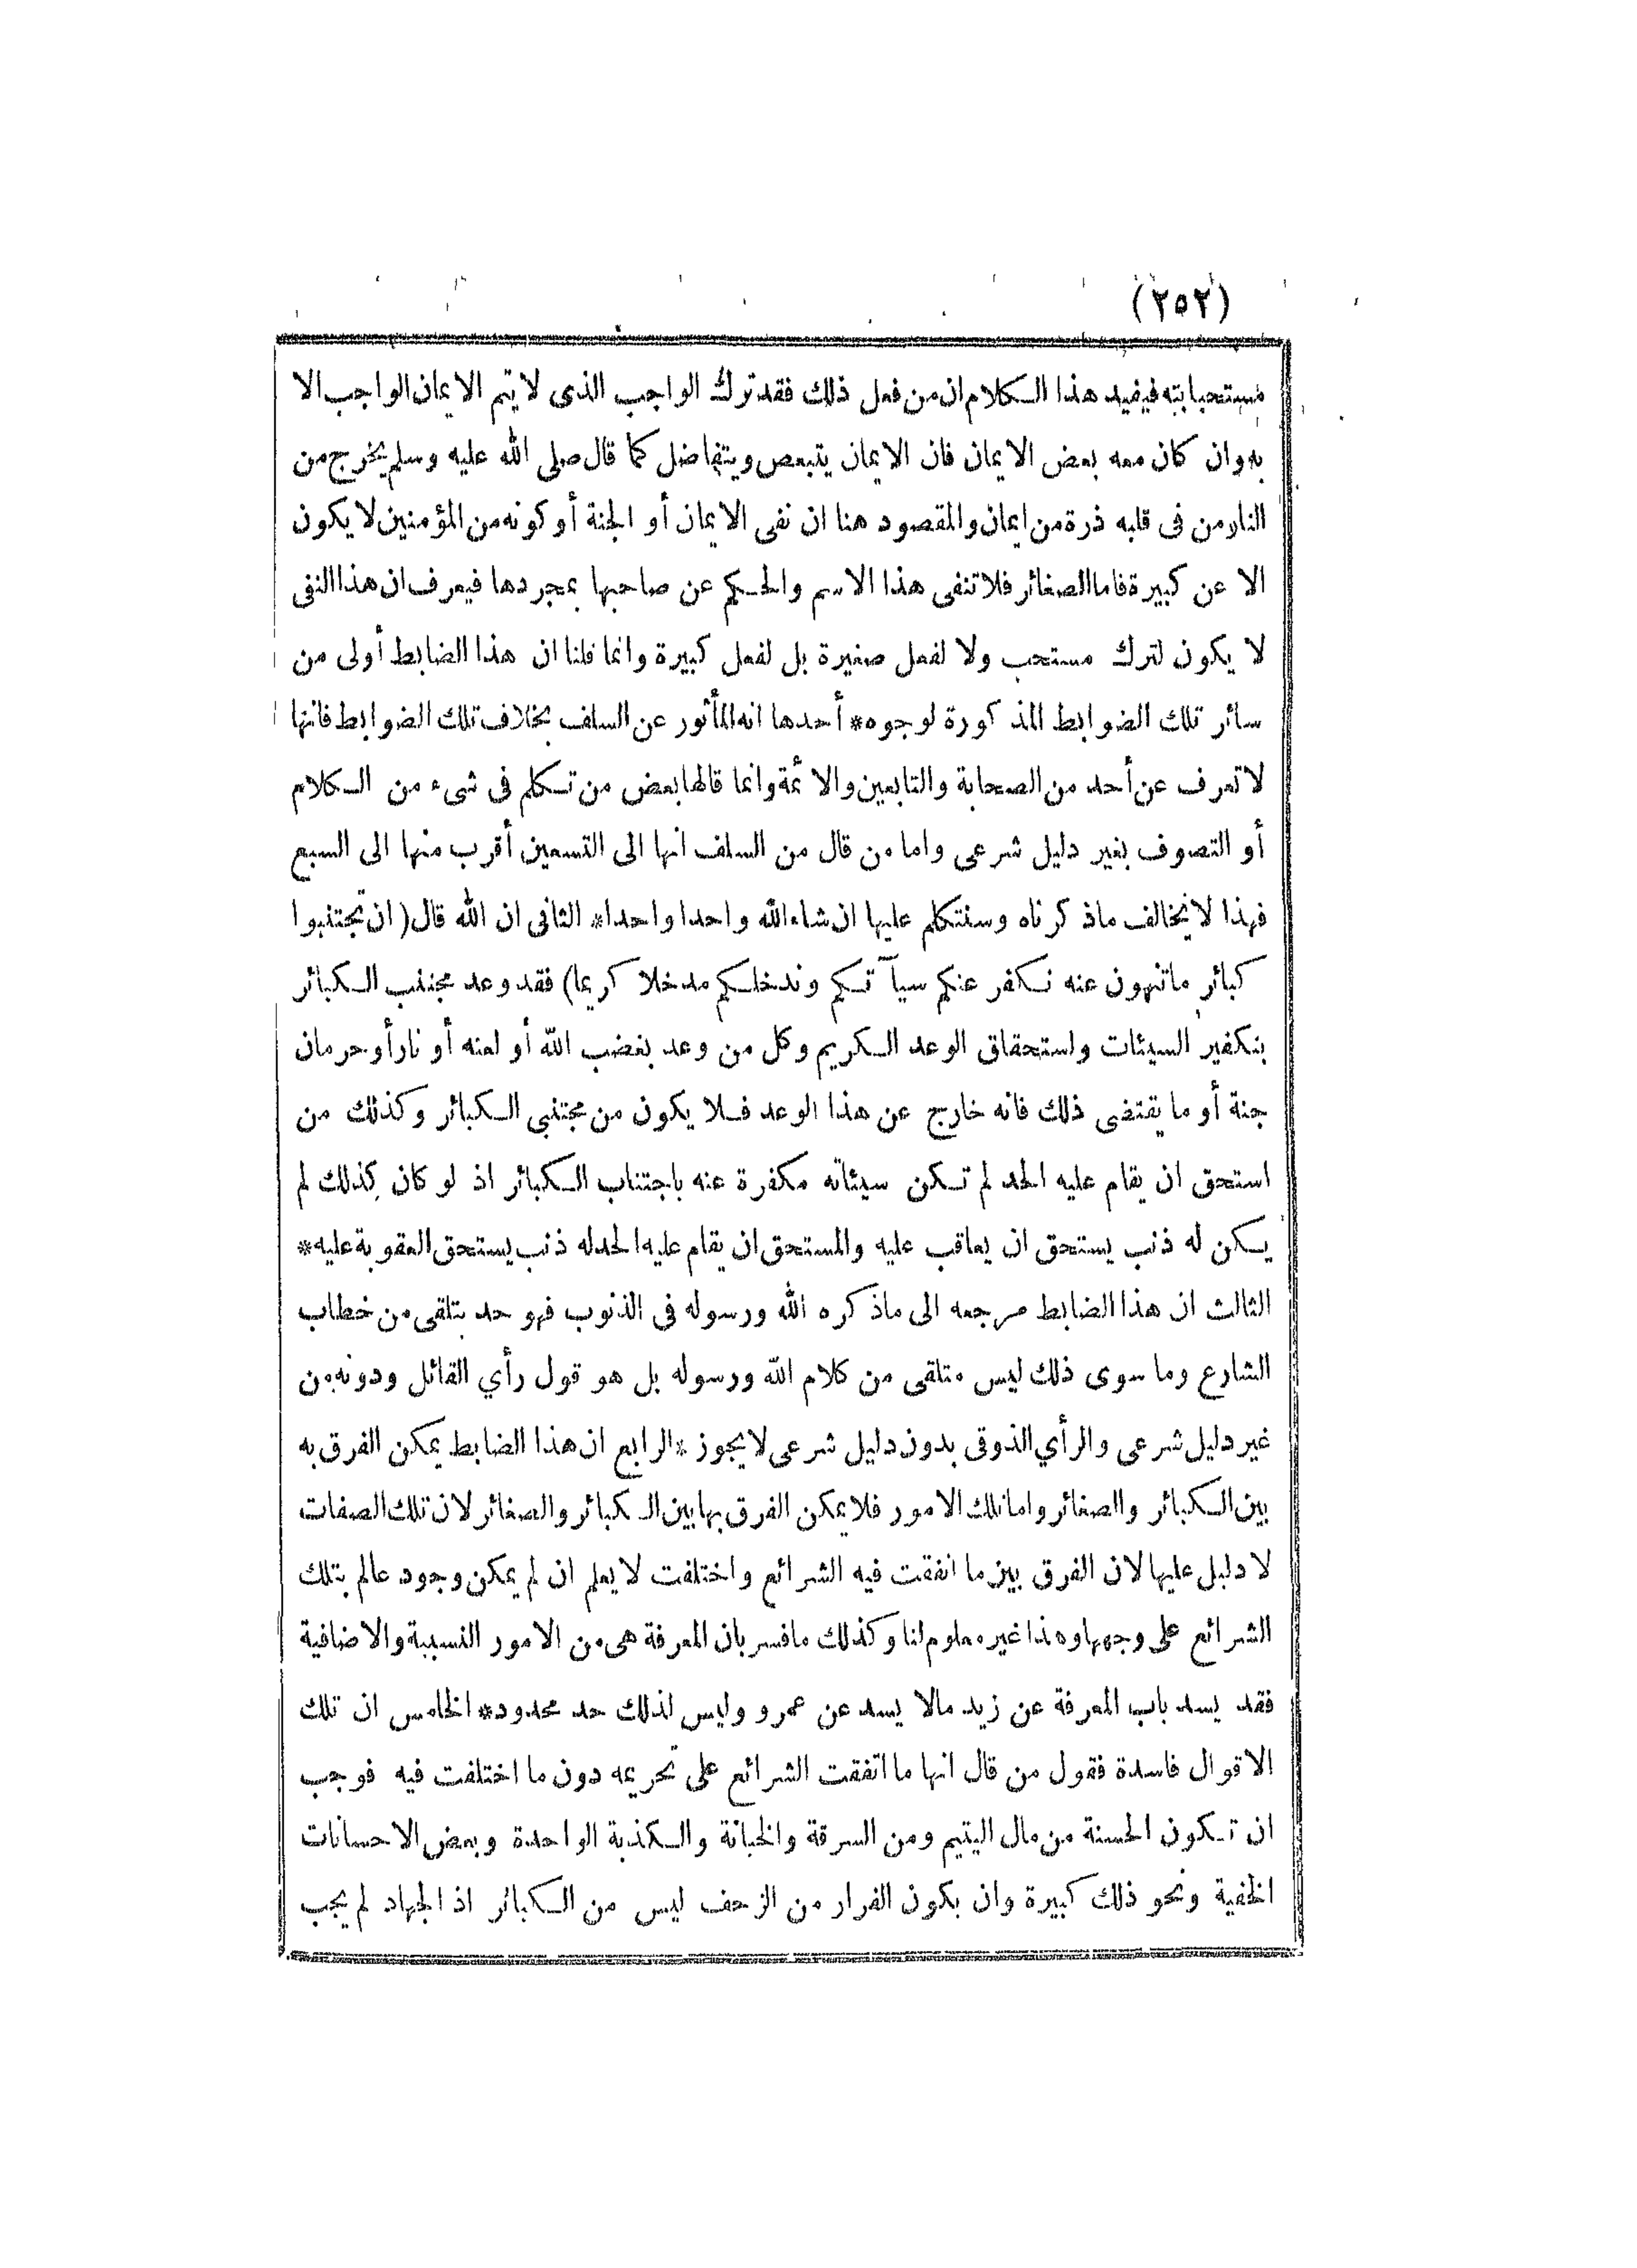 (٢٥٢)
مستحبا بته فيفيد هذا الكلام ان من فعل ذلك فقد ترك الواجب الذى لا يتم الايمان الواجب الا
به وان كان معه بعض الايمان فان الايمان يتبعض ويتفاضل كما قال صلى الله عليه وسلم يخرج من
النار من فى قلبه ذرة من ايمان والمقصود هنا ان نفى الايمان أو الجنة أو كونه من المؤمنين لا يكون
الا عن كبيرة فاما الصغائر فلا تنفى هذا الاسم والحكم عن صاحبها بمجردها فيعرف ان هذا النفى
لا يكون لترك مستحب ولا لفعل صغيرة بل لفعل كبيرة وانما قلنا ان هذا الضابط أولى من
سائر تلك الضوابط المذكورة لوجوه* أحدها انه المأثور عن السلف بخلاف تلك الضوابط فانها
لا تعرف عن أحد من الصحابة والتابعين والائمة وانما قالها بعض من تكلم فى شىء من الكلام
أو التصوف بغير دليل شرعى واما من قال من السلف انها الى التسعين أقرب منها الى السبع
فهذا لا يخالف ماذكرناه وسنتكلم عليها ان شاء الله واحدا واحدا* الثانى ان الله قال (ان تجتنبوا
كبائر ماتنهون عنه نكفر عنكم سيآتكم وندخلكم مدخلا كريما) فقد وعد مجتنب الكبائر
بتكفير السيئات واستحقاق الوعد الكريم وكل من وعد بغضب الله أو لعنه أو نار أو حرمان
جنة أو ما يقتضى ذلك فانه خارج عن هذا الوعد فلا يكون من مجتنبى الكبائر وكذلك من
استحق ان يقام عليه الحد لم تكن سيئاته مكفرة عنه باجتناب الكبائر اذ لو كان كذلك لم
يكن له ذنب يستحق ان يعاقب عليه والمستحق ان يقام عليه الحد له ذنب يستحق العقوبة عليه*
الثالث ان هذا الضابط مرجعه الى ماذكره الله ورسوله فى الذنوب فهو حد يتلقى من خطاب
الشارع وما سوى ذلك ليس متلقى من كلام الله ورسوله بل هو قول رأي القائل ودونه من
غير دليل شرعى والرأي الذوقى بدون دليل شرعى لا يجوز* الرابع ان هذا الضابط يمكن الفرق به
بين الكبائر والصغائر واما تلك الامور فلا يمكن الفرق بها بين الكبائر والصغائر لان تلك الصفات
لا دليل عليها لان الفرق بين ما اتفقت فيه الشرائع واختلفت لا يعلم ان لم يمكن وجود عالم بتلك
الشرائع على وجهها وهذا غير معلوم لنا وكذلك مافسر بان المعرفة هى من الامور النسبية والاضافية
فقد يسد باب المعرفة عن زيد مالا يسد عن عمرو وليس لذلك حد محدود* الخامس ان تلك
الاقوال فاسدة فقول من قال انها ما اتفقت الشرائع على تحريمه دون ما اختلفت فيه فوجب
ان تكون الحسنة من مال اليتيم ومن السرقة والخيانة والكذبة الواحدة وبعض الاحسانات
الخفية ونحو ذلك كبيرة وان يكون الفرار من الزحف ليس من الكبائر اذ الجهاد لم يجب